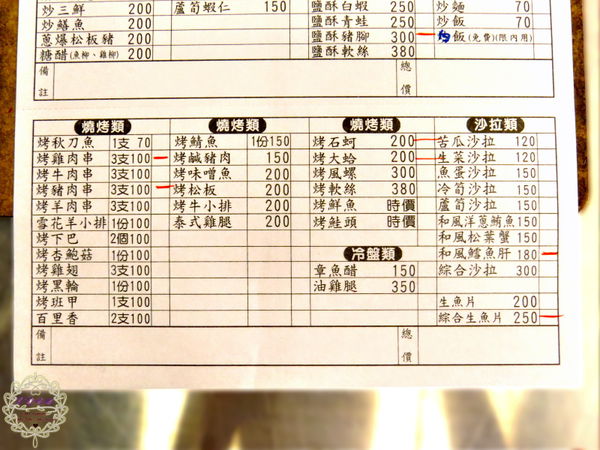 炒三鮮 200
炒鱔魚 200
蔥爆松板豬 200
糖醋(魚柳、雞柳) 200
蘆筍蝦仁 150
鹽酥白蝦 250
鹽酥青蛙 250
鹽酥豬腳 300
鹽酥軟絲 380
炒麵 70
炒飯 70
飯(免費)(限內用)
備註
總價
燒烤類
烤秋刀魚 1支 70
烤雞肉串 3支100
烤牛肉串 3支100
烤豬肉串 3支100
烤羊肉串 3支100
雪花羊小排 1份100
烤下巴 2個100
烤杏鮑菇 1份100
烤雞翅 3支100
烤黑輪 1份100
烤班甲 1支100
百里香 2支100
燒烤類
烤鯖魚 1份150
烤鹹豬肉 150
烤味噌魚 200
烤松板 200
烤牛小排 200
泰式雞腿 200
燒烤類
烤石蚵 200
烤大蛤 200
烤風螺 300
烤軟絲 380
烤鮮魚 時價
烤鮭頭 時價
冷盤類
章魚醋 150
油雞腿 350
沙拉類
苦瓜沙拉 120
生菜沙拉 120
魚蛋沙拉 150
冷筍沙拉 150
蘆筍沙拉 150
和風洋蔥鮪魚 150
和風松葉蟹 150
和風鱈魚肝 180
綜合沙拉 300
生魚片 200
綜合生魚片 250
備註
總價